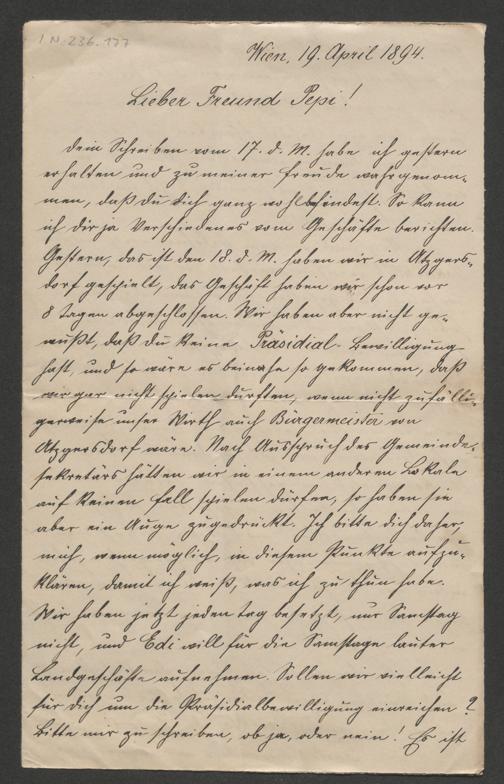 I N. 236.177
Wien, 19. April 1894.
Lieber Freund Pepi!
Dein Schreiben vom 17. d. M. habe ich gestern
erhalten und zu meiner Freude wahrgenom-
men, daß du dich ganz wohl befindest. So kann
ich dir ja Verschiedenes vom Geschäfte berichten.
Gestern, das ist den 18. d. M. haben wir in Atzgers-
dorf gespielt, das Geschäft haben wir schon vor
8 Tagen abgeschlossen. Wir haben aber nicht ge-
wußt, daß du keine Präsidial-Bewilligung
hast, und so wäre es beinahe so gekommen, daß
wir gar nicht spielen durften, wenn nicht zufälli-
gerweise unser Wirth auch Bürgermeister von
Atzgersdorf wäre. Nach Ausspruch des Gemeinde-
sekretärs hätten wir in einem anderen Lokale
auf keinen Fall spielen dürfen, so haben sie
aber ein Auge zugedrückt. Ich bitte dich daher,
mich, wenn möglich, in diesem Punkte aufzu-
klären, damit ich weiß, was ich zu thun habe.
Wir haben jetzt jeden Tag besetzt, nur Samstag
nicht, und Edi will für die Samstage lauter
Landgeschäfte aufnehmen. Sollen wir vielleicht
für dich um die Präsidialbewilligung einreichen?
Bitte mir zu schreiben, ob ja, oder nein! Es ist